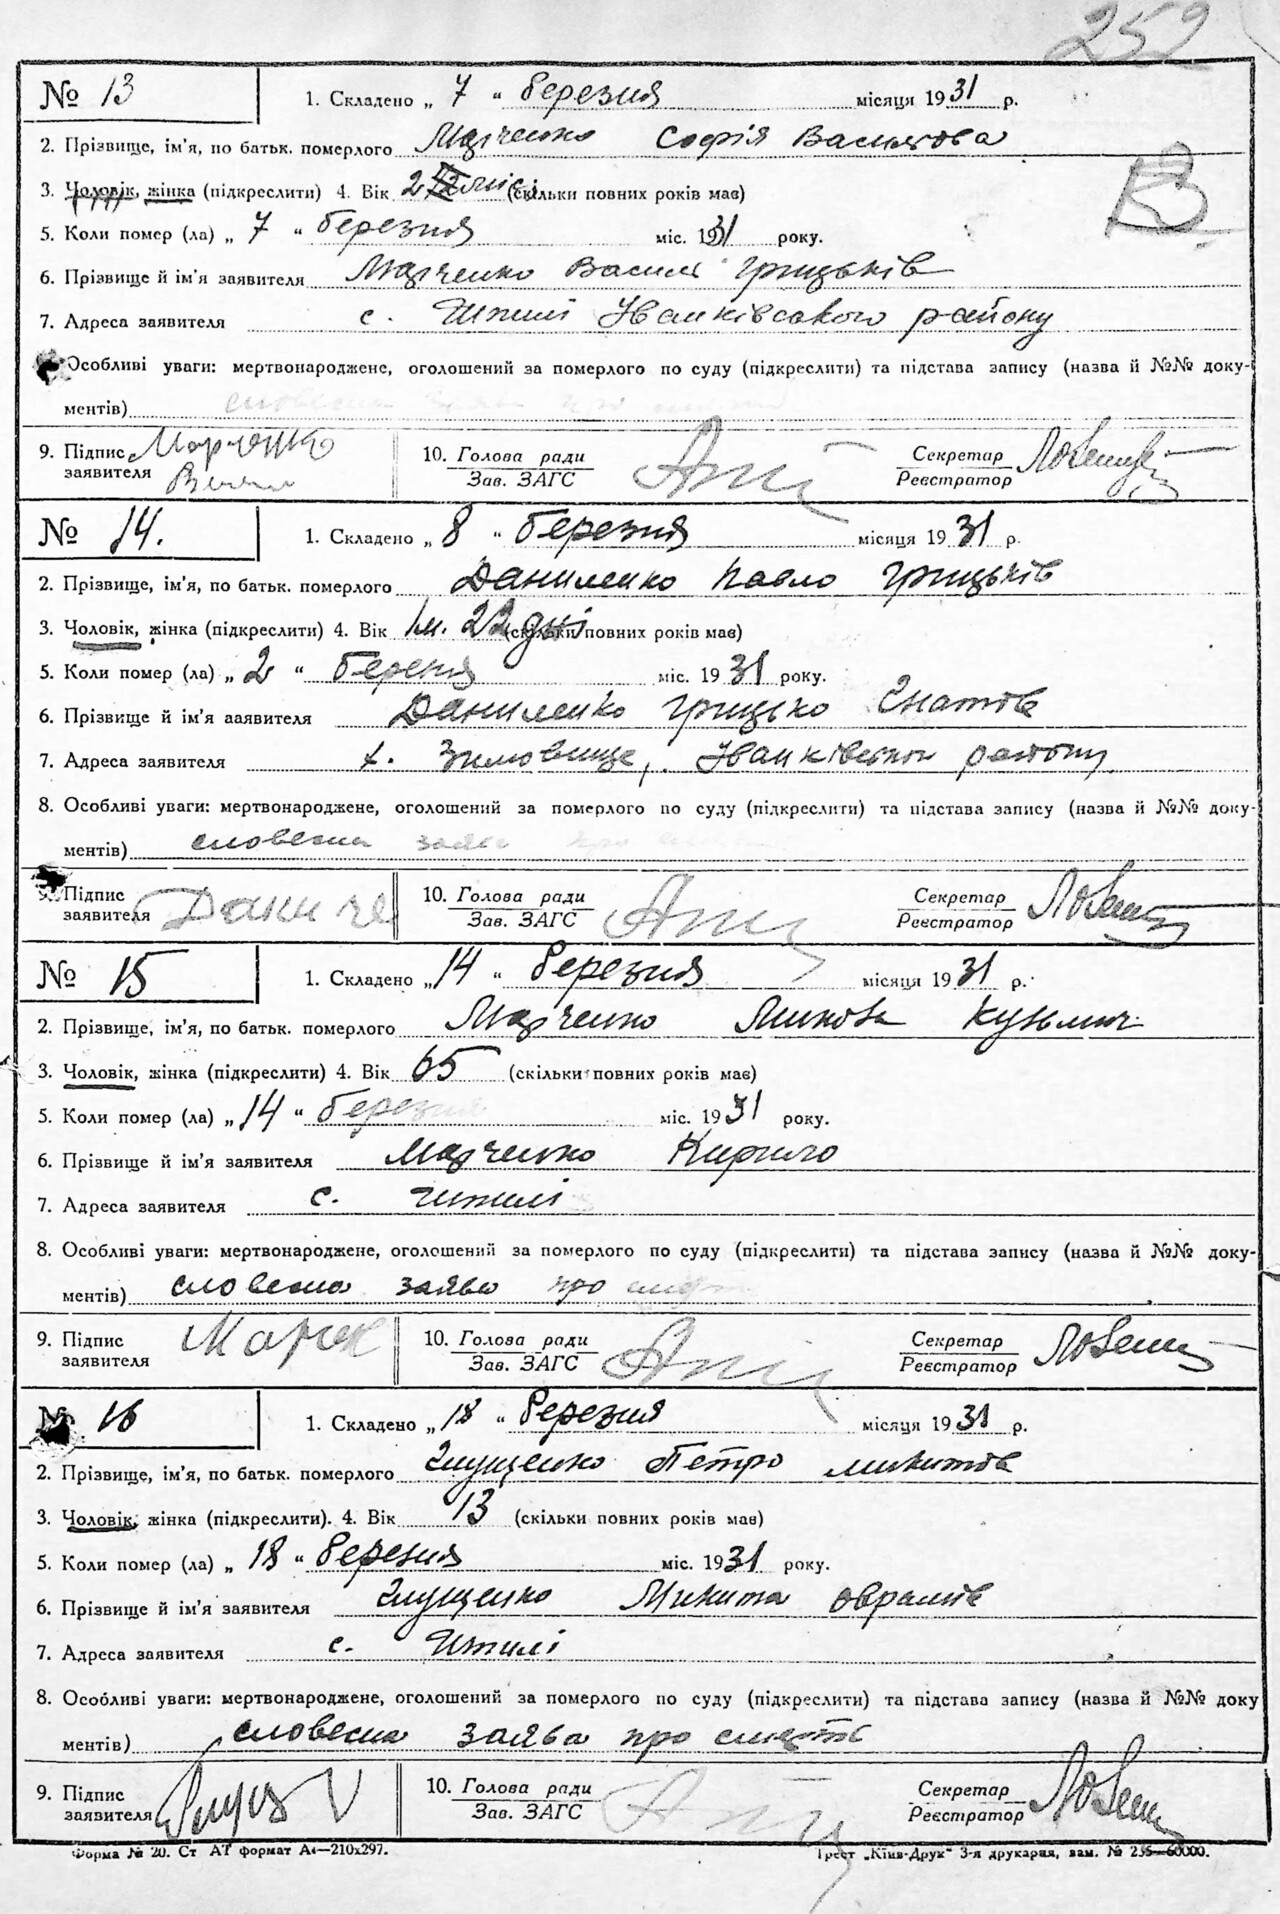 252
№ 13 1. Складено „ 7 “ березня місяця 1931 р.
2. Прізвище, ім'я, по батьк. померлого Марченко Софія Василева
3. Чоловік, жінка (підкреслити) 4. Вік 2 міс. (скільки повних років має)
5. Коли помер (ла) „ 7 “ березня міс. 1931 року.
6. Прізвище й ім'я заявителя Марченко Василь Грицьків
7. Адреса заявителя с. Іванківського району
Особливі уваги: мертвонароджене, оголошений за померлого по суду (підкреслити) та підстава запису (назва й №№ доку-
ментів) словесна заява про
9. Підпис заявителя Марченко 10. Голова ради Зав. ЗАГС Секретар Реєстратор
№ 14. 1. Складено „ 8 “ березня місяця 1931 р.
2. Прізвище, ім'я, по батьк. померлого Даниленко Павло Грицьків
3. Чоловік, жінка (підкреслити) 4. Вік 1 м. 22 дні (скільки повних років має)
5. Коли помер (ла) „ 2 “ березня міс. 1931 року.
6. Прізвище й ім'я ааявителя Даниленко Грицько Гнатов
7. Адреса заявителя х. Зимовище, Іванківськ району
8. Особливі уваги: мертвонароджене, оголошений за померлого по суду (підкреслити) та підстава запису (назва й №№ доку-
ментів) словесна заява про
9. Підпис заявителя Даниле 10. Голова ради Зав. ЗАГС Секретар Реєстратор
№ 15 1. Складено „ 14 “ березня місяця 1931 р.
2. Прізвище, ім'я, по батьк. померлого Марченко Кузьмич
3. Чоловік, жінка (підкреслити) 4. Вік 65 (скільки повних років має)
5. Коли помер (ла) „ 14 “ березня міс. 1931 року.
6. Прізвище й ім'я заявителя Марченко Кирило
7. Адреса заявителя с.
8. Особливі уваги: мертвонароджене, оголошений за померлого по суду (підкреслити) та підстава запису (назва й №№ доку-
ментів) словесна заява про смерт
9. Підпис заявителя Марче 10. Голова ради Зав. ЗАГС Секретар Реєстратор
№ 16 1. Складено „ 18 “ березня місяця 1931 р.
2. Прізвище, ім'я, по батьк. померлого Глущенко Петро Микитов
3. Чоловік, жінка (підкреслити). 4. Вік 13 (скільки повних років має)
5. Коли помер (ла) „ 18 “ березня міс. 1931 року.
6. Прізвище й ім'я заявителя Глущенко Микита Оврамів
7. Адреса заявителя с.
8. Особливі уваги: мертвонароджене, оголошений за померлого по суду (підкреслити) та підстава запису (назва й №№ доку
ментів) словесна заява про смерть
9. Підпис заявителя Глущ 10. Голова ради Зав. ЗАГС Секретар Реєстратор
Форма № 20. Ст АТ формат А4—210х297. Трест „Київ-Друк“ 3-я друкарня, зам. № 235—60000.